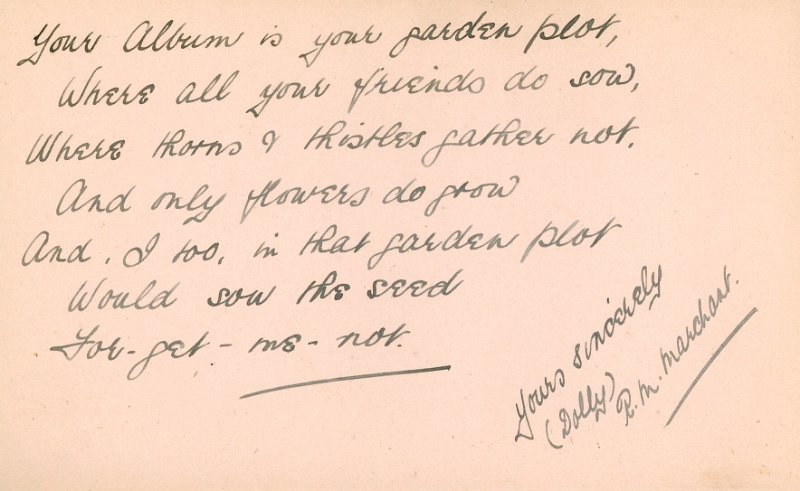 Your Album is your garden plot,
Where all your friends do sow,
Where thorns & thistles gather not.
And only flowers do grow
And. I too, in that garden plot
Would sow the seed
For-get-me-not.
Yours sincerely
(Dolly)
R.M. Marchant.